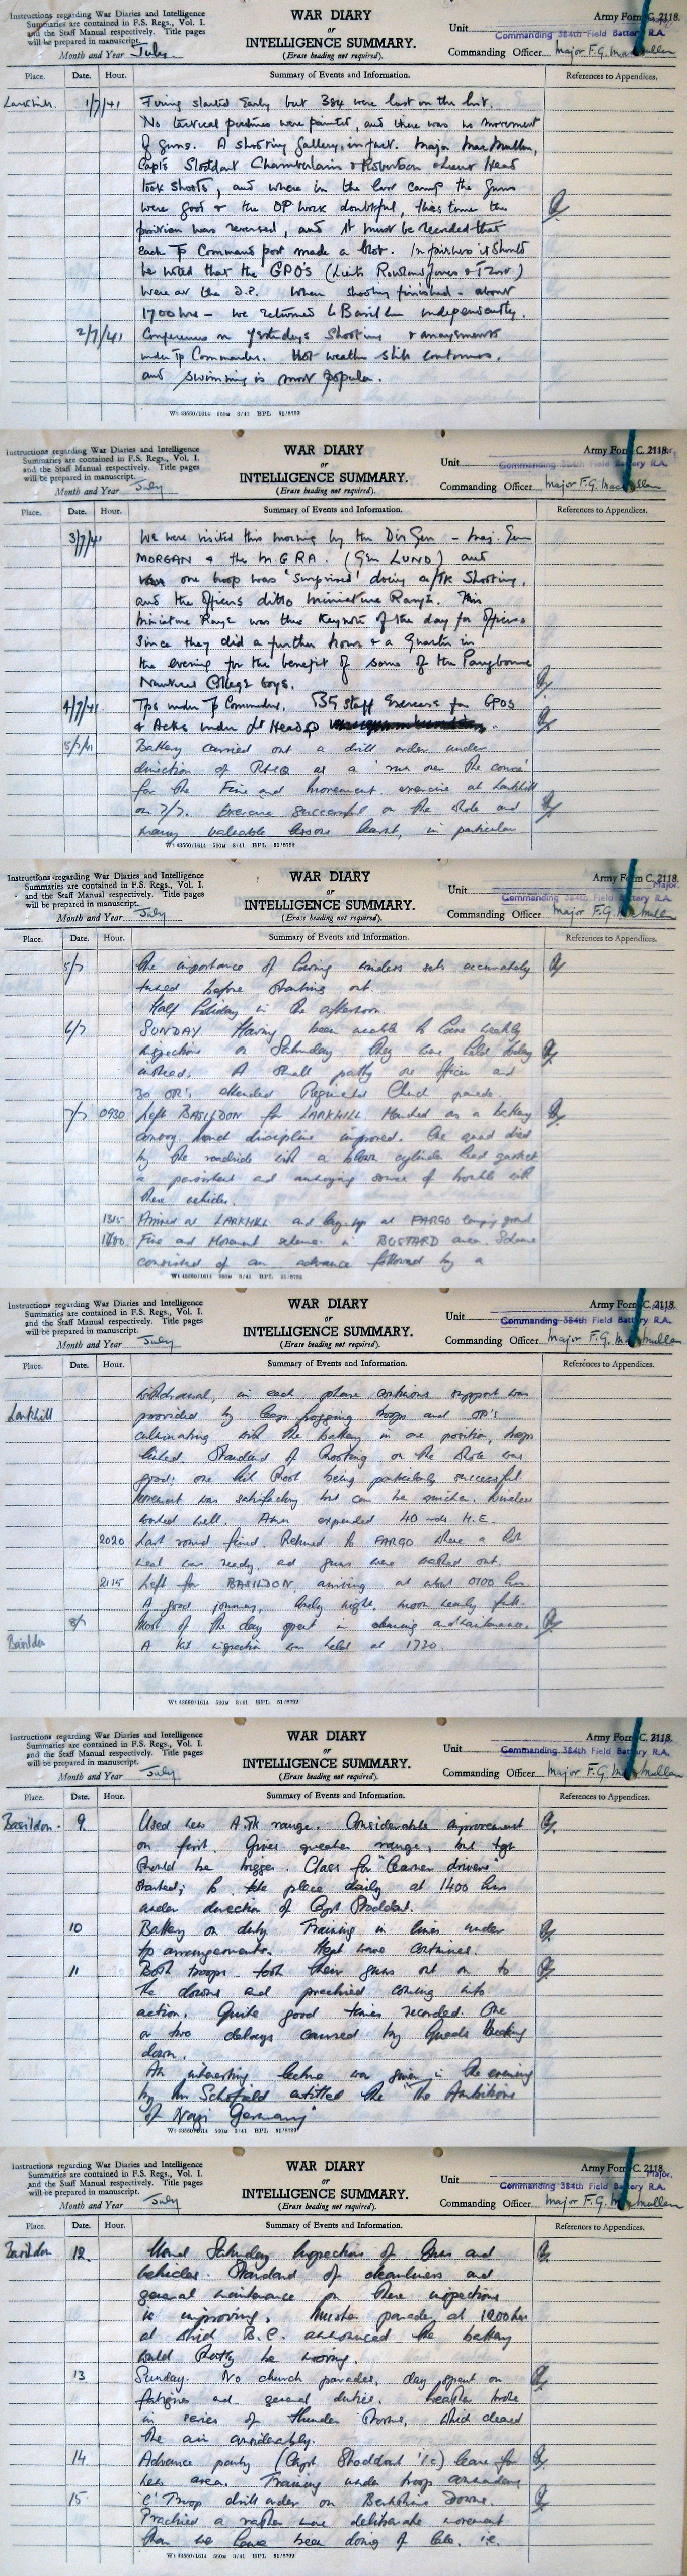 Instructions regarding War Diaries and Intelligence
Summaries are contained in F.S. Regs., Vol. I.
and the Staff Manual respectively. Title pages
will be prepared in manuscript.
Month and Year July
WAR DIARY
or
INTELLIGENCE SUMMARY.
(Erase heading not required).
Army Form C. 2118.
Unit
Commanding 384th Field Battery R.A.
Commanding Officer Major F.G. MacMullen
Place. Date. Hour. Summary of Events and Information. References to Appendices.
Larkhill. 1/7/41 Firing started early but 384 were last on the list.
No tactical positions were painted, and there was no movement
of guns. A shooting gallery, in fact. Major MacMullen,
Capts Stoddart Chamberlain & Robertson & Lieut Head
took shoots, and where in the last camp the guns
were good & the OP work doubtful, this time the
position was reversed, and it must be recorded that
each Tp Command post made a blot. In fairness it should
be noted that the GPO's (Lieuts Rowland Jones &
were at the O.P. When shooting finished - about
1700 hrs - we returned to Basildon independently.
2/7/41 Conference on yesterdays shooting & arrangements
under Tp Commander. Hot weather still continues,
and swimming is most popular.
Wt 43550/1614 560M 3/41 BPL 51/8792
Instructions regarding War Diaries and Intelligence
Summaries are contained in F.S. Regs., Vol. I.
and the Staff Manual respectively. Title pages
will be prepared in manuscript.
Month and Year July
WAR DIARY
or
INTELLIGENCE SUMMARY.
(Erase heading not required).
Army Form C. 2118.
Unit
Commanding 384th Field Battery R.A.
Commanding Officer Major F.G. MacMullen
Place. Date. Hour. Summary of Events and Information. References to Appendices.
3/7/41 We were visited this morning by the Div Gen - Maj. Gen
MORGAN & the M.G.R.A. (Gen LUND) and
one troop was 'surprised' doing a/Tk shooting,
and the officers ditto Miniature Range. This
Miniature Range was the keynote of the day for officers
since they did a further hour & a quarter in
the evening for the benefit of some of the Pangbourne
Nautical College boys.
4/7/41 Tps under Tp Commander. BG staff Exercise for GPOS
& Acks under Lt Head
5/7/41 Battery carried out a drill order under
direction of RHQ as a 'run over the course'
for the Fire and Movement exercise at Larkhill
on 7/7. Exercise successful on the whole and
many valuable lessons learnt, in particular
Wt 43550/1614 560M 3/41 BPL 51/8792
Instructions regarding War Diaries and Intelligence
Summaries are contained in F.S. Regs., Vol. I.
and the Staff Manual respectively. Title pages
will be prepared in manuscript.
Month and Year July
WAR DIARY
or
INTELLIGENCE SUMMARY.
(Erase heading not required).
Army Form C. 2118.
Major.
Unit
Commanding 384th Field Battery R.A.
Commanding Officer Major F.G. MacMullen
Place. Date. Hour. Summary of Events and Information. References to Appendices.
5/7 the importance of having wireless sets accurately
tuned before starting out.
Half holiday in the afternoon.
6/7 SUNDAY Having been unable to have weekly
inspections on Saturday they were held today
instead. A small party one officer and
30 OR's attended Regimental Church parade.
7/7 0930 Left BASILDON for LARKHILL. Marched as a battery
convoy, march discipline improved. One quad died
by the roadside with a blown cylinder head gasket
a persistent and annoying source of trouble with
these vehicles.
1315 Arrived at LARKHILL and at FARGO camping ground
Fire and Movement scheme in BUSTARD area. Scheme
consisted of an advance followed by a
Wt 43550/1614 560M 3/41 BPL 51/8792
Instructions regarding War Diaries and Intelligence
Summaries are contained in F.S. Regs., Vol. I.
and the Staff Manual respectively. Title pages
will be prepared in manuscript.
Month and Year July
WAR DIARY
or
INTELLIGENCE SUMMARY.
(Erase heading not required).
Army Form C. 2118.
Major.
Unit
Commanding 384th Field Battery R.A.
Commanding Officer Major F.G. MacMullen
Place. Date. Hour. Summary of Events and Information. References to Appendices.
withdrawal, in each phase continuous support was
Larkhill provided by leap frogging troops and OP's
culminating with the battery in one position, troops
linked. Standard of shooting on the whole was
good; one shoot being particularly successful
Movement was satisfactory but can be quicker. Wireless
worked well. Amn expended 40 rds H.E.
2020 Last round fired. Returned to FARGO where a hot
meal was ready, and guns were washed out.
2115 Left for BASILDON, arriving at about 0100 hrs.
A good journey, lovely night, moon nearly full.
8/7 Most of the day spent in cleaning and maintenance.
Basildon A kit inspection was held at 1730
Wt 43550/1614 560M 3/41 BPL 51/8792
Instructions regarding War Diaries and Intelligence
Summaries are contained in F.S. Regs., Vol. I.
and the Staff Manual respectively. Title pages
will be prepared in manuscript.
Month and Year July
WAR DIARY
or
INTELLIGENCE SUMMARY.
(Erase heading not required).
Army Form C. 2118.
Unit
Commanding 384th Field Battery R.A.
Commanding Officer Major F.G. MacMullen
Place. Date. Hour. Summary of Events and Information. References to Appendices.
Basildon. 9. Used new A.Tk range. Considerable improvement
on first. Gives greater range, but tgt
should be bigger. Class for "learner drivers"
started; to take place daily at 1400 hrs
under direction of Capt Stoddart.
10 Battery on duty Training in lines under
tp arrangements. Heat wave continues.
11 Both troops took their guns out on to
the downs and practised coming into
action. Quite good times recorded. One
or two delays caused by Quads breaking
down.
An interesting lecture was given in the evening
by Mr Schofield entitled the "The Ambitions
of Nazi Germany"
Wt 43550/1614 560M 3/41 BPL 51/8792
Instructions regarding War Diaries and Intelligence
Summaries are contained in F.S. Regs., Vol. I.
and the Staff Manual respectively. Title pages
will be prepared in manuscript.
Month and Year July
WAR DIARY
or
INTELLIGENCE SUMMARY.
(Erase heading not required).
Army Form C. 2118.
Major.
Unit
Commanding 384th Field Battery R.A.
Commanding Officer Major F.G. MacMullen
Place. Date. Hour. Summary of Events and Information. References to Appendices.
Basildon 12. Usual Saturday Inspections of Guns and
vehicles. Standard of cleanliness and
general maintenance on these inspections
is improving. Muster parade at 1200 hrs
at which B.C. announced the battery
would shortly be moving.
13 Sunday. No church parades, day spent on
fatigues and general duties. Weather broke
in series of thunder storms, which cleared
the air considerably.
14 Advance party (Capt Stoddart i/c) leave for
new area. Training under troop
15 'C' Troop drill order on Berkshire Downs.
Practised a rather more deliberate movement
than we have been doing of late. i.e.
Wt 43550/1614 560M 3/41 BPL 51/8792